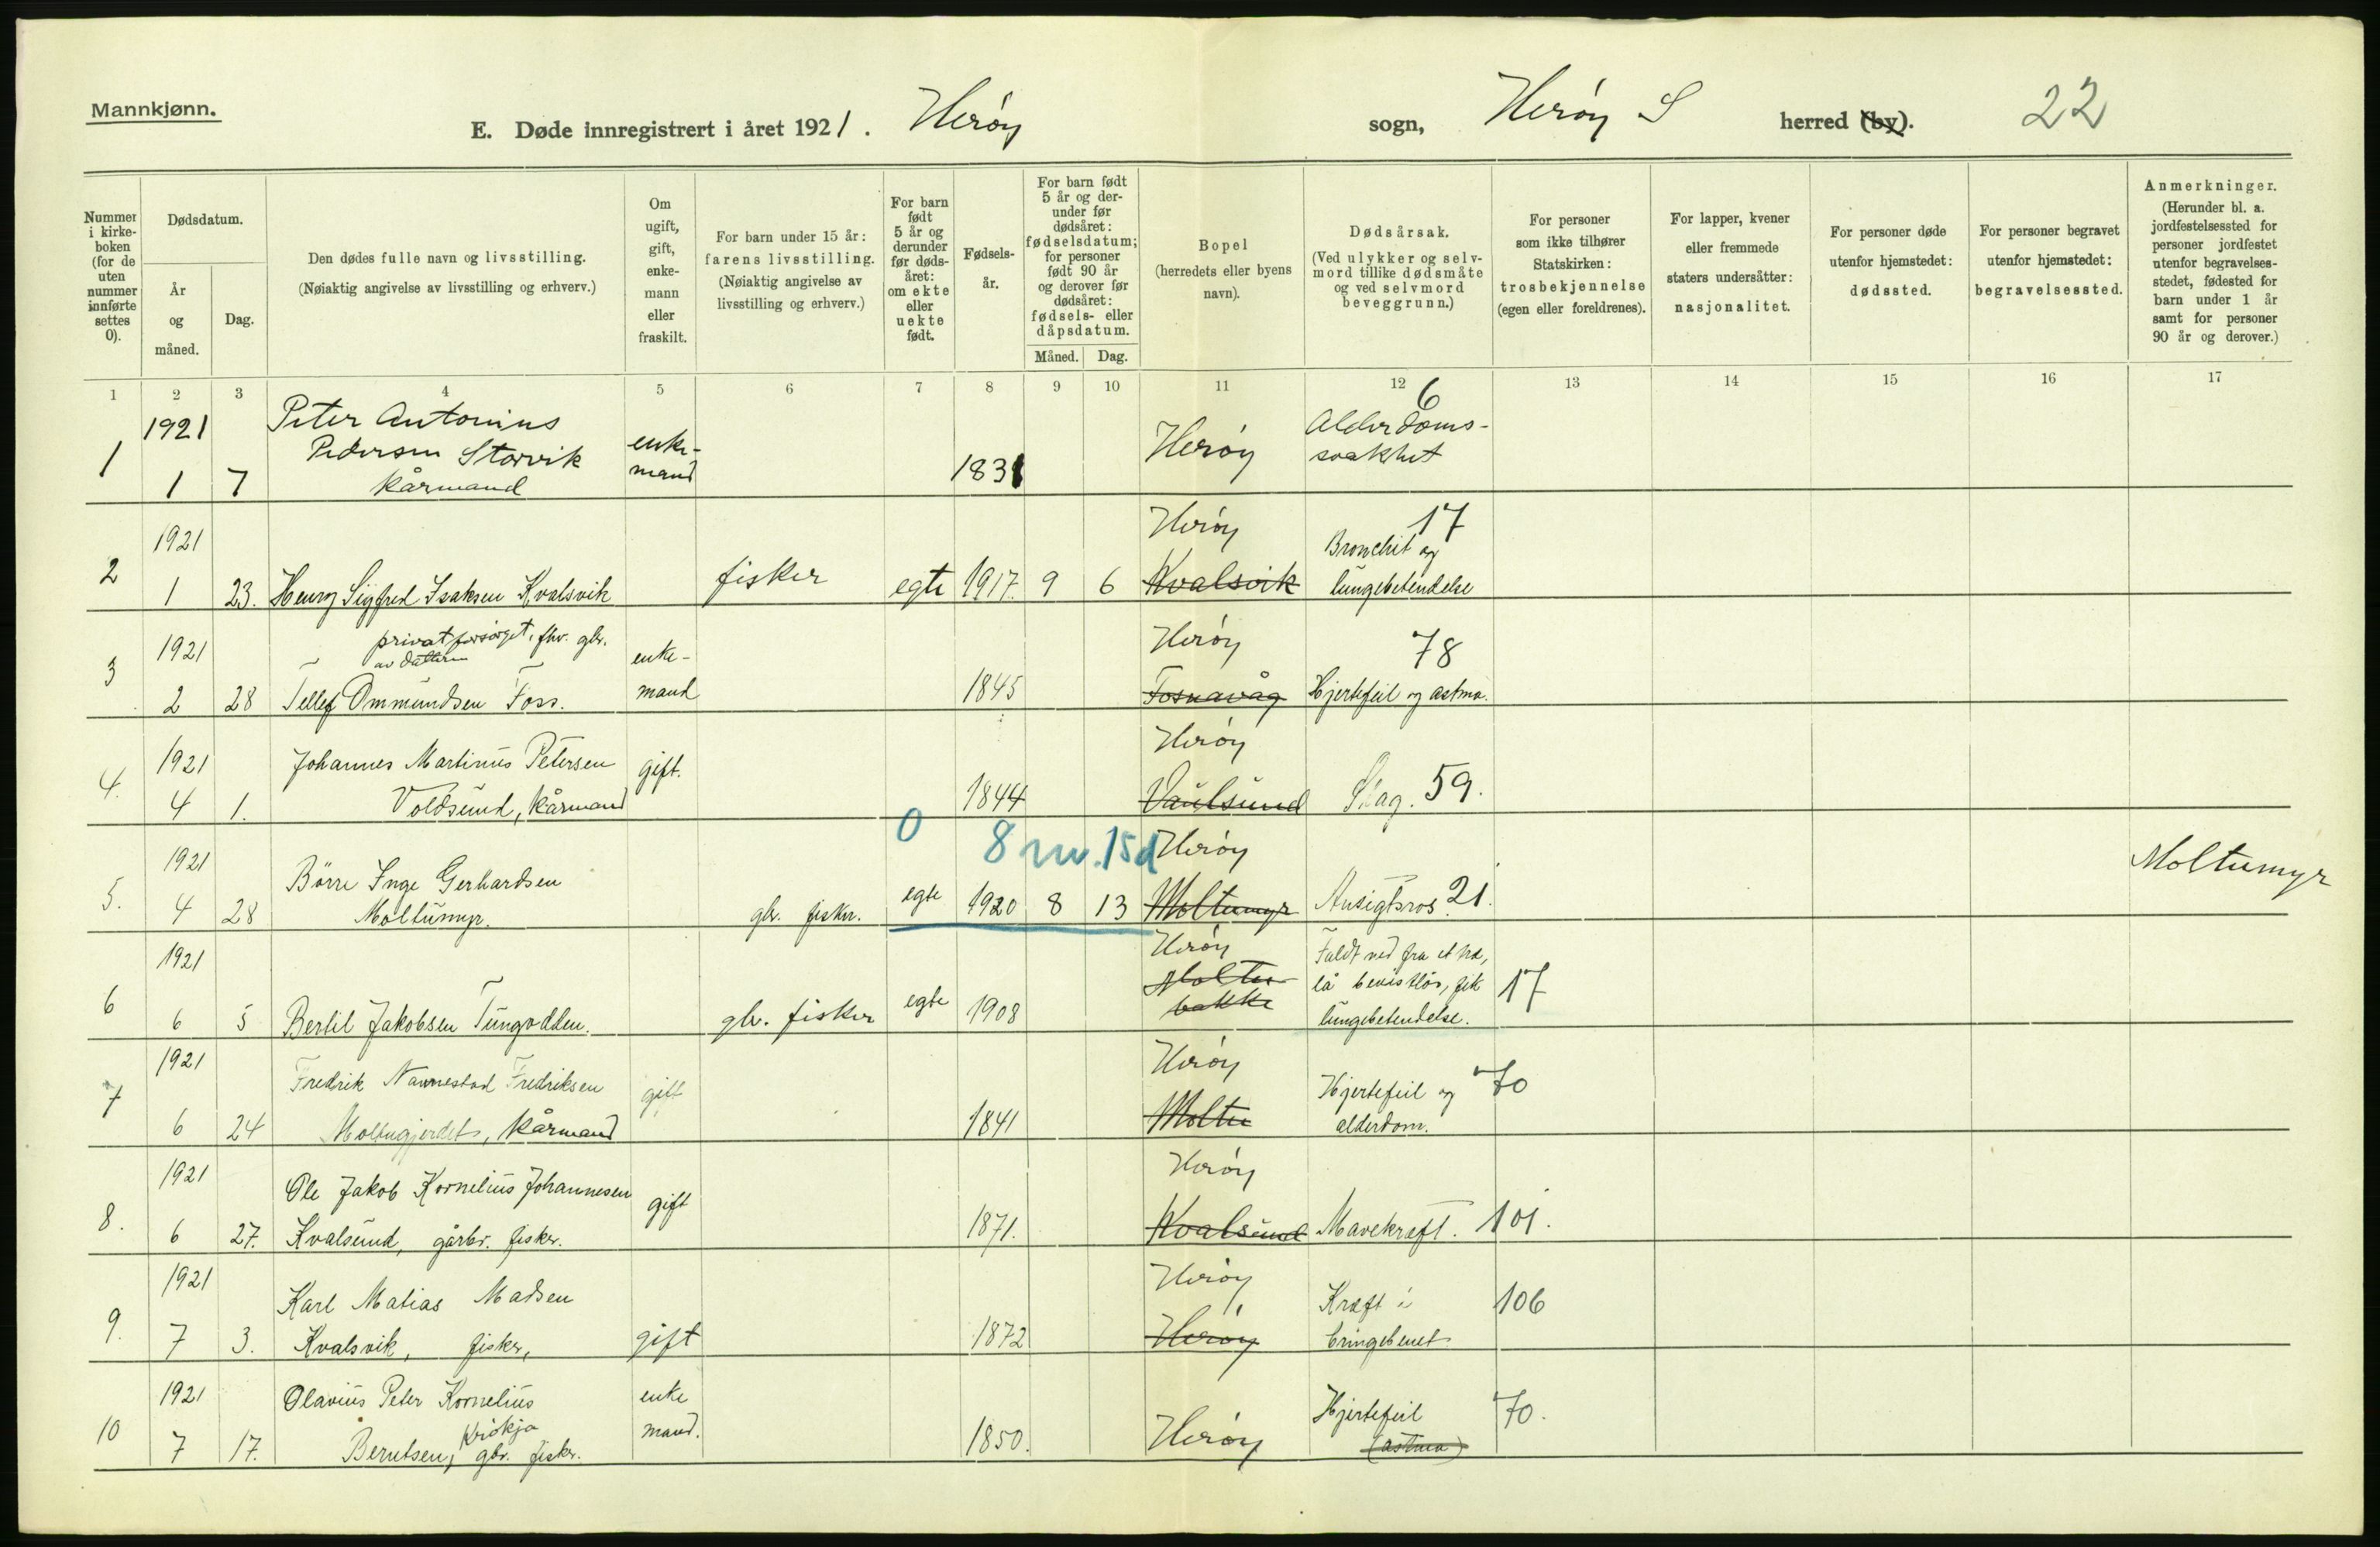 Mannkjønn.
E. Døde innregistrert i året 1921. Herøy sogn, Herøy S herred (by). 22
Nummer i kirkeboken (for de uten nummer innførte settes 0).
Dødsdatum.
År og måned.
Dag.
Den dødes fulle navn og livsstilling.
(Nøiaktig angivelse av livsstilling og erhverv.)
Om ugift, gift, enkemann eller fraskilt.
For barn under 15 år: farens livsstilling.
(Nøiaktig angivelse av livsstilling og erhverv.)
For barn født 5 år og derunder før dødsåret: om ekte eller uekte født.
Fødselsår.
For barn født 5 år og derunder før dødsåret: fødselsdatum; for personer født 90 år og derover før dødsåret: fødsels- eller dåpsdatum.
Måned. Dag.
Bopel
(herredets eller byens navn).
Dødsårsak.
(Ved ulykker og selvmord tillike dødsmåte og ved selvmord beveggrunn.)
For personer som ikke tilhører Statskirken: trosbekjennelse (egen eller foreldrenes).
For lapper, kvener eller fremmede staters undersåtter: nasjonalitet.
For personer døde utenfor hjemstedet: dødssted.
For personer begravet utenfor hjemstedet: begravelsessted.
Anmerkninger.
(Herunder bl. a. jordfestelsessted for personer jordfestet utenfor begravelsesstedet, fødested for barn under 1 år samt for personer 90 år og derover.)
1 2 3 4 5 6 7 8 9 10 11 12 13 14 15 16 17
1 1921 1 7 Peter Antonius
Pedersen Storvik
kårmand
enke-
mand
1831 Herøy 6
Alderdoms-
svakhet
2 1921 1 23. Henry Sigfred Isaksen Kvalsvik fisker egte 1917. 9 6 Herøy
Kvalsvik
17
Bronchit og
lungebetendelse
3 1921 2 28 privat forsørget, fhv. gbr.
av datteren
Tellef Ommundsen Foss.
enke-
mand
1845 Herøy
Fosnavåg
78
Hjertefeil og astma.
4. 1921 4 1. Johannes Martinus Petersen
Voldsund, kårmand
gift.
1844 Herøy
Vaulsund
Slag. 59.
0 8 m. 15 d
5. 1921 4 28 Börre Inge Gerhardsen
Moltumyr.
gbr. fisker. egte 1920 8 13 Herøy
Moltumyr
Ansigtsros 21.
Moltumyr
6 1921 6 5 Bertil Jakobsen Tungodden. gbr. fisker egte 1908 Herøy
Moltu-
bakke
Faldt ned fra et tre,
lå bevistløs, fik
lungebetendelse.
17
7 1921 6 24 Fredrik Nannestad Fredriksen
Moltugjerdet, kårmand
gift
1841 Herøy
Moltu
Hjertefeil og
alderdom.
70
8. 1921 6 27. Ole Jakob Kornelius Johannesen
Kvalsund, gårbr. fisker.
gift
1871. Herøy
Kvalsund
Mavekræft. 101.
9. 1921 7 3. Karl Matias Madsen
Kvalsvik, fisker,
gift
1872 Herøy
Herøy
Kræft i
bringebenet
106
10 1921 7 17. Olavius Peter Kornelius
Krøkja
Berntsen, gbr. fisker.
enke
mand.
1850. Herøy
Hjertefeil
(astma)
70.